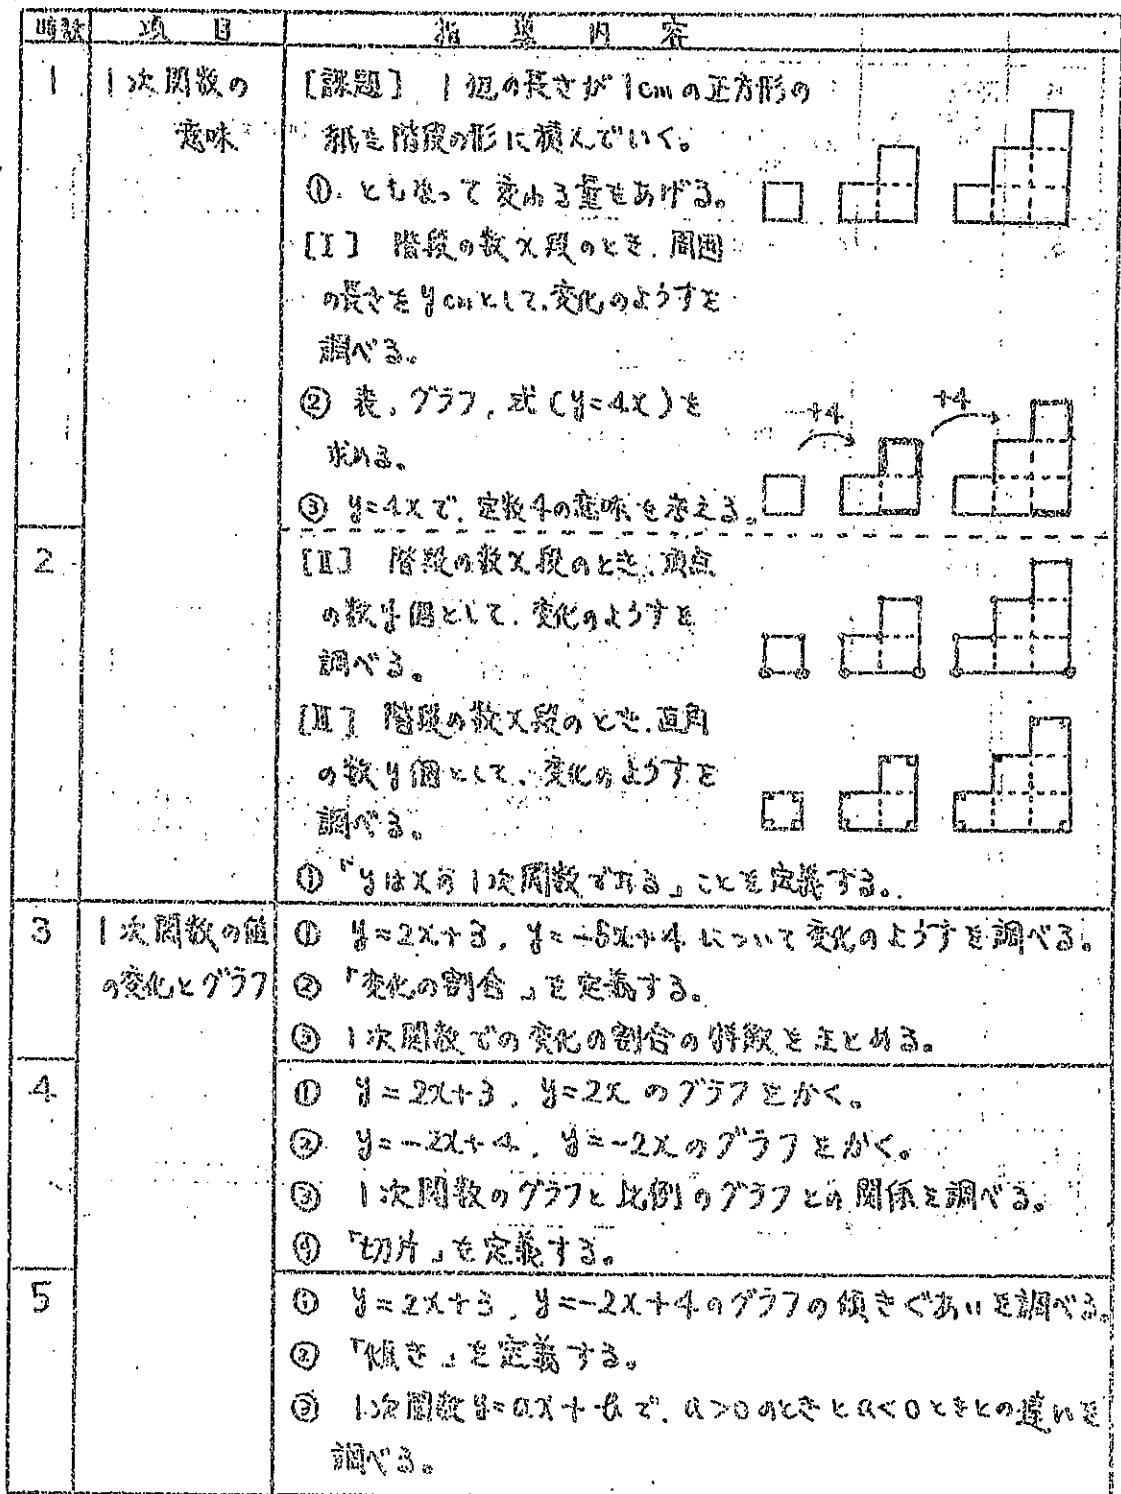 時数 項目 指導内容
1 1次関数の [課題] 1辺の長さが1cmの正方形の
意味 紙を階段の形に積んでいく。
① ともなって変わる量をあげる。
[Ⅰ] 階段の数x段のとき、周囲
の長さをycmとして、変化のようすを
調べる。
② 表、グラフ、式(y=4x)を
求める。
+4 +4
③ y=4xで、定数4の意味を考える。
2 [Ⅱ] 階段の数x段のとき、頂点
の数y個として、変化のようすを
調べる。
[Ⅲ] 階段の数x段のとき、直角
の数y個として、変化のようすを
調べる。
① 「yはxの1次関数である」ことを定義する。
3 1次関数の値 ① y=2x+3, y=-5x+4 について変化のようすを調べる。
の変化とグラフ ② 「変化の割合」を定義する。
③ 1次関数での変化の割合の特徴をまとめる。
4 ① y=2x+3, y=2x のグラフをかく。
② y=-2x+4, y=-2xのグラフをかく。
③ 1次関数のグラフと比例のグラフとの関係を調べる。
④ 「切片」を定義する。
5 ① y=2x+3, y=-2x+4のグラフの傾きぐあいを調べる。
② 「傾き」を定義する。
③ 1次関数y=ax+bで、a>0のときとa<0ときとの違いを
調べる。